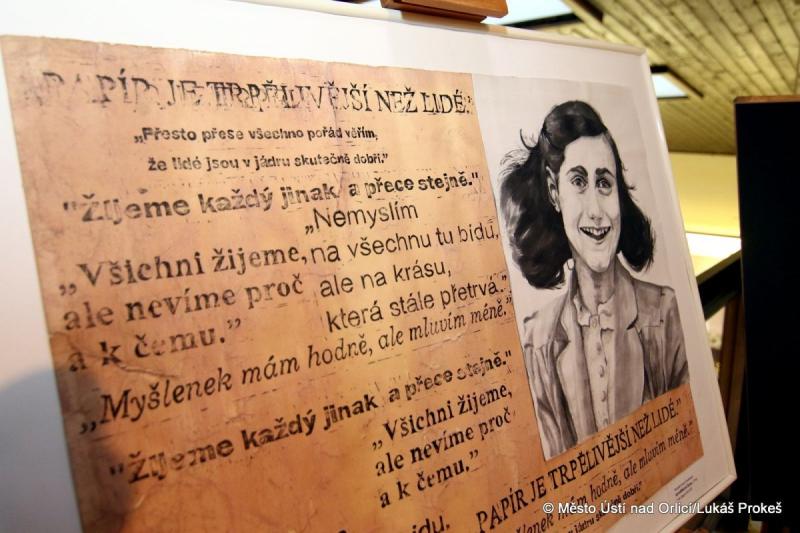 PAPÍR JE TRPĚLIVĚJŠÍ NEŽ LIDÉ.
„Přesto přese všechno pořád věřím,
že lidé jsou v jádru skutečně dobří.”
"Žijeme každý jinak, a přece stejně."
„Nemyslím
na všechnu tu bídu,
ale na krásu,
která stále přetrvá.”
„Všichni žijeme,
ale nevíme proč
a k čemu.”
„Myšlenek mám hodně, ale mluvím méně.”
"Žijeme každý jinak, a přece stejně."
„Všichni žijeme,
ale nevíme proč
a k čemu.”
bídu,
PAPÍR JE TRPĚLIVĚJŠÍ NEŽ LIDÉ.”
šlenek mám hodně, ale mluvím méně.”
v jádru skutečně dobří.”
© Město Ústí nad Orlicí/Lukáš Prokeš